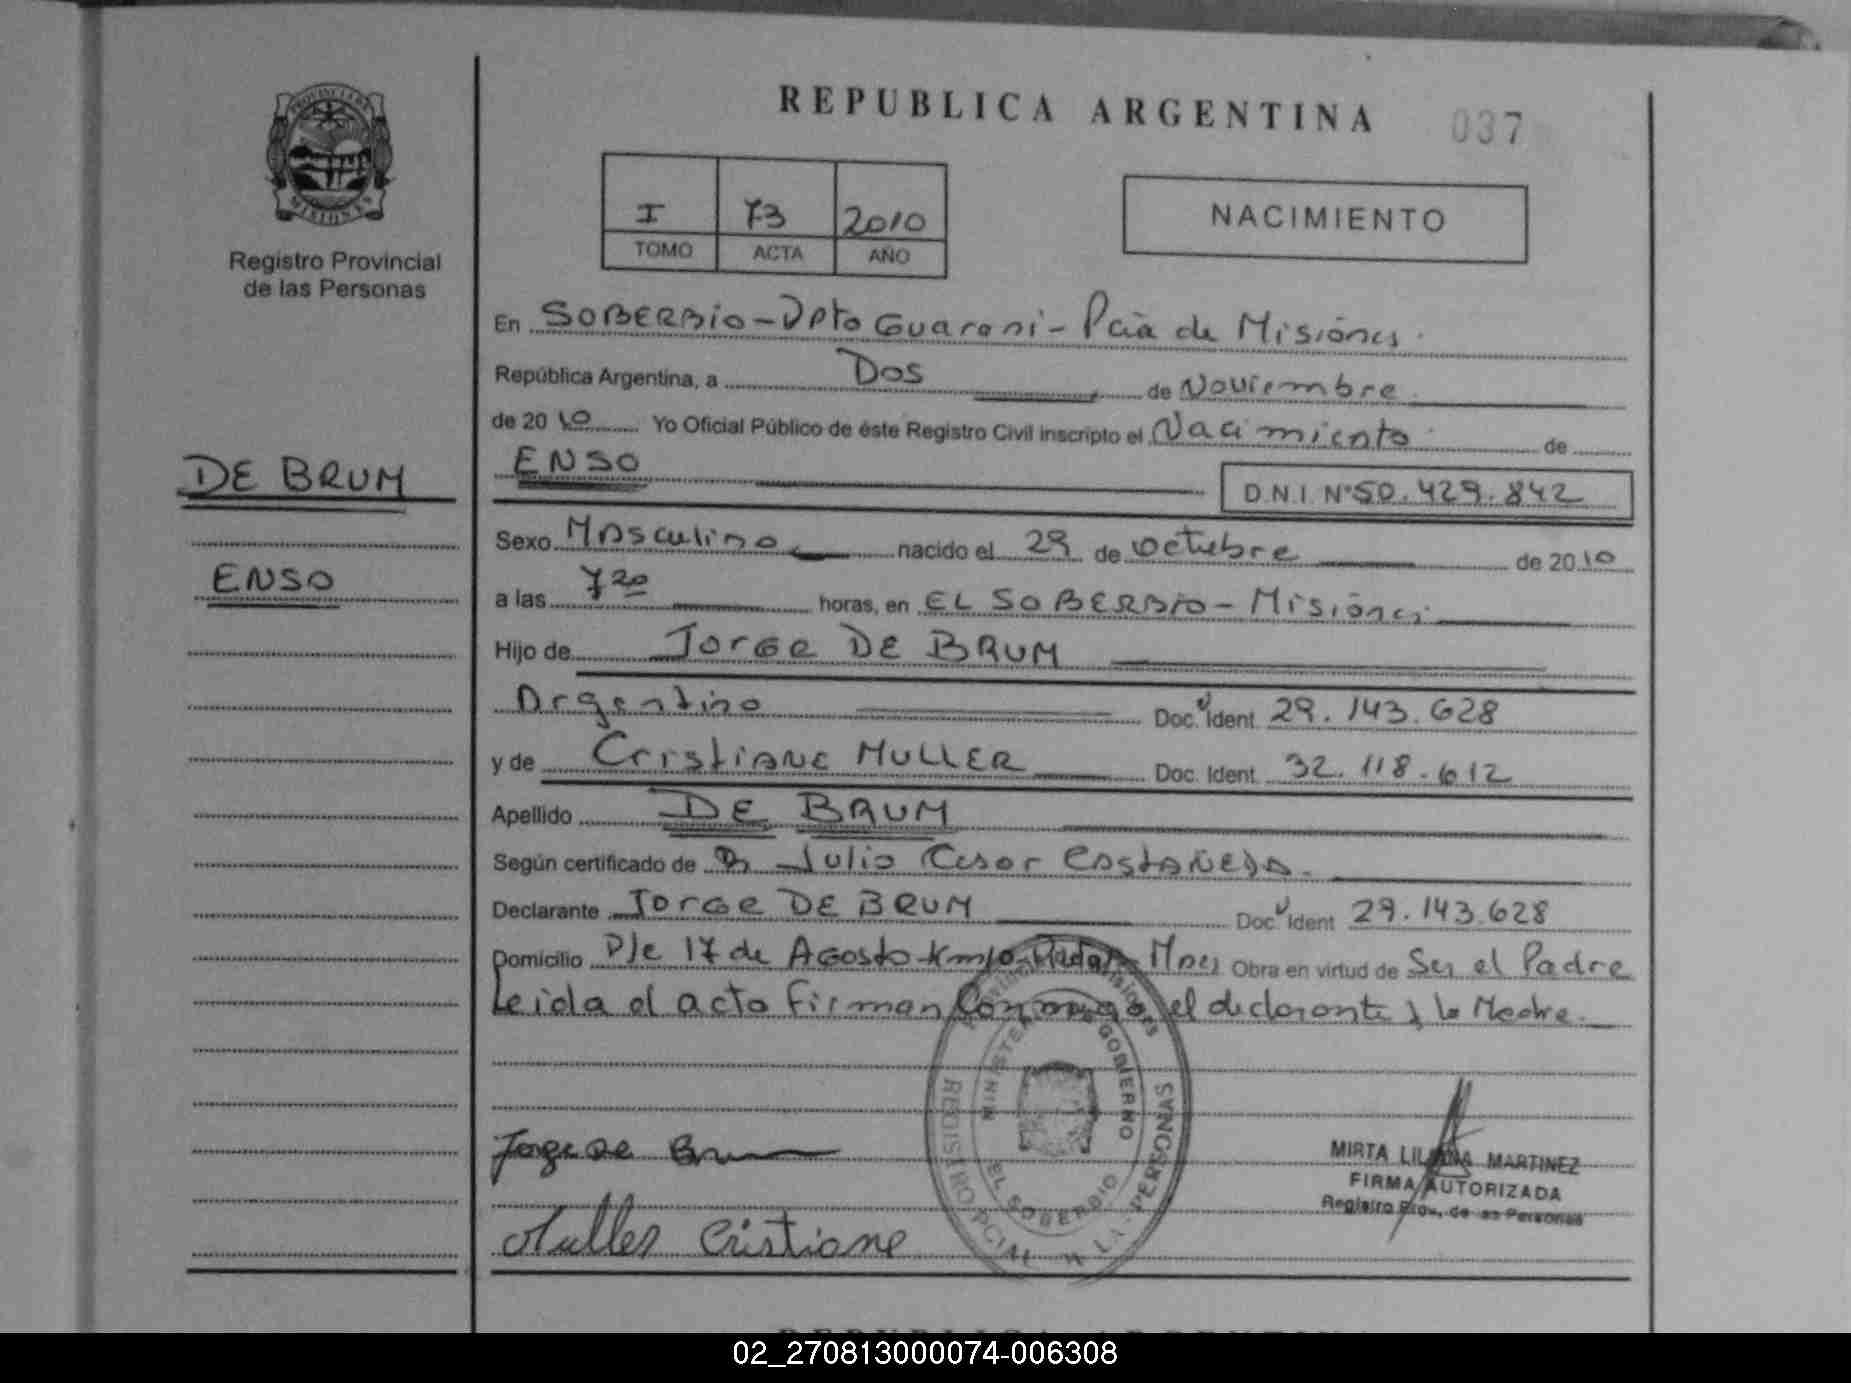 REPUBLICA ARGENTINA
037
PROVINCIA DE
MISIONES
Registro Provincial
de las Personas
I 73 2010
TOMO ACTA AÑO
NACIMIENTO
En SOBERBIO - Dpto Guarani - Pcia de Misiones.
República Argentina, a Dos de Noviembre
de 2010 Yo Oficial Público de éste Registro Civil inscripto el Nacimiento de
ENSO
D.N.I. Nº 50.429.842
DE BRUM
ENSO
Sexo Masculino nacido el 29 de octubre de 2010
a las 7 20 horas, en EL SOBERBIO - Misiones
Hijo de Jorge DE BRUM
Argentino Doc. Ident 29.143.628
y de Cristiane MULLER Doc. Ident 32.118.612
Apellido DE BRUM
Según certificado de Dr Julio Cesar Castañeda.
Declarante Jorge DE BRUM Doc. Ident 29.143.628
Domicilio 17 de Agosto Obra en virtud de Ser el Padre
Leida el acta firman conmigo el declarante y la Madre.
MINISTERIO GOBIERNO
REGISTRO PCIAL LA PERSONAS
EL SOBERBIO
Jorge De Brum
Muller Cristiane
MIRTA LILIANA MARTINEZ
FIRMA AUTORIZADA
Registro Prov. de las Personas
REPUBLICA ARGENTINA
02_270813000074-006308